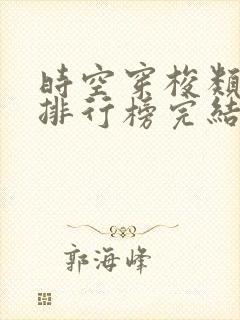 時空穿梭類
排行榜完結
郭海峰